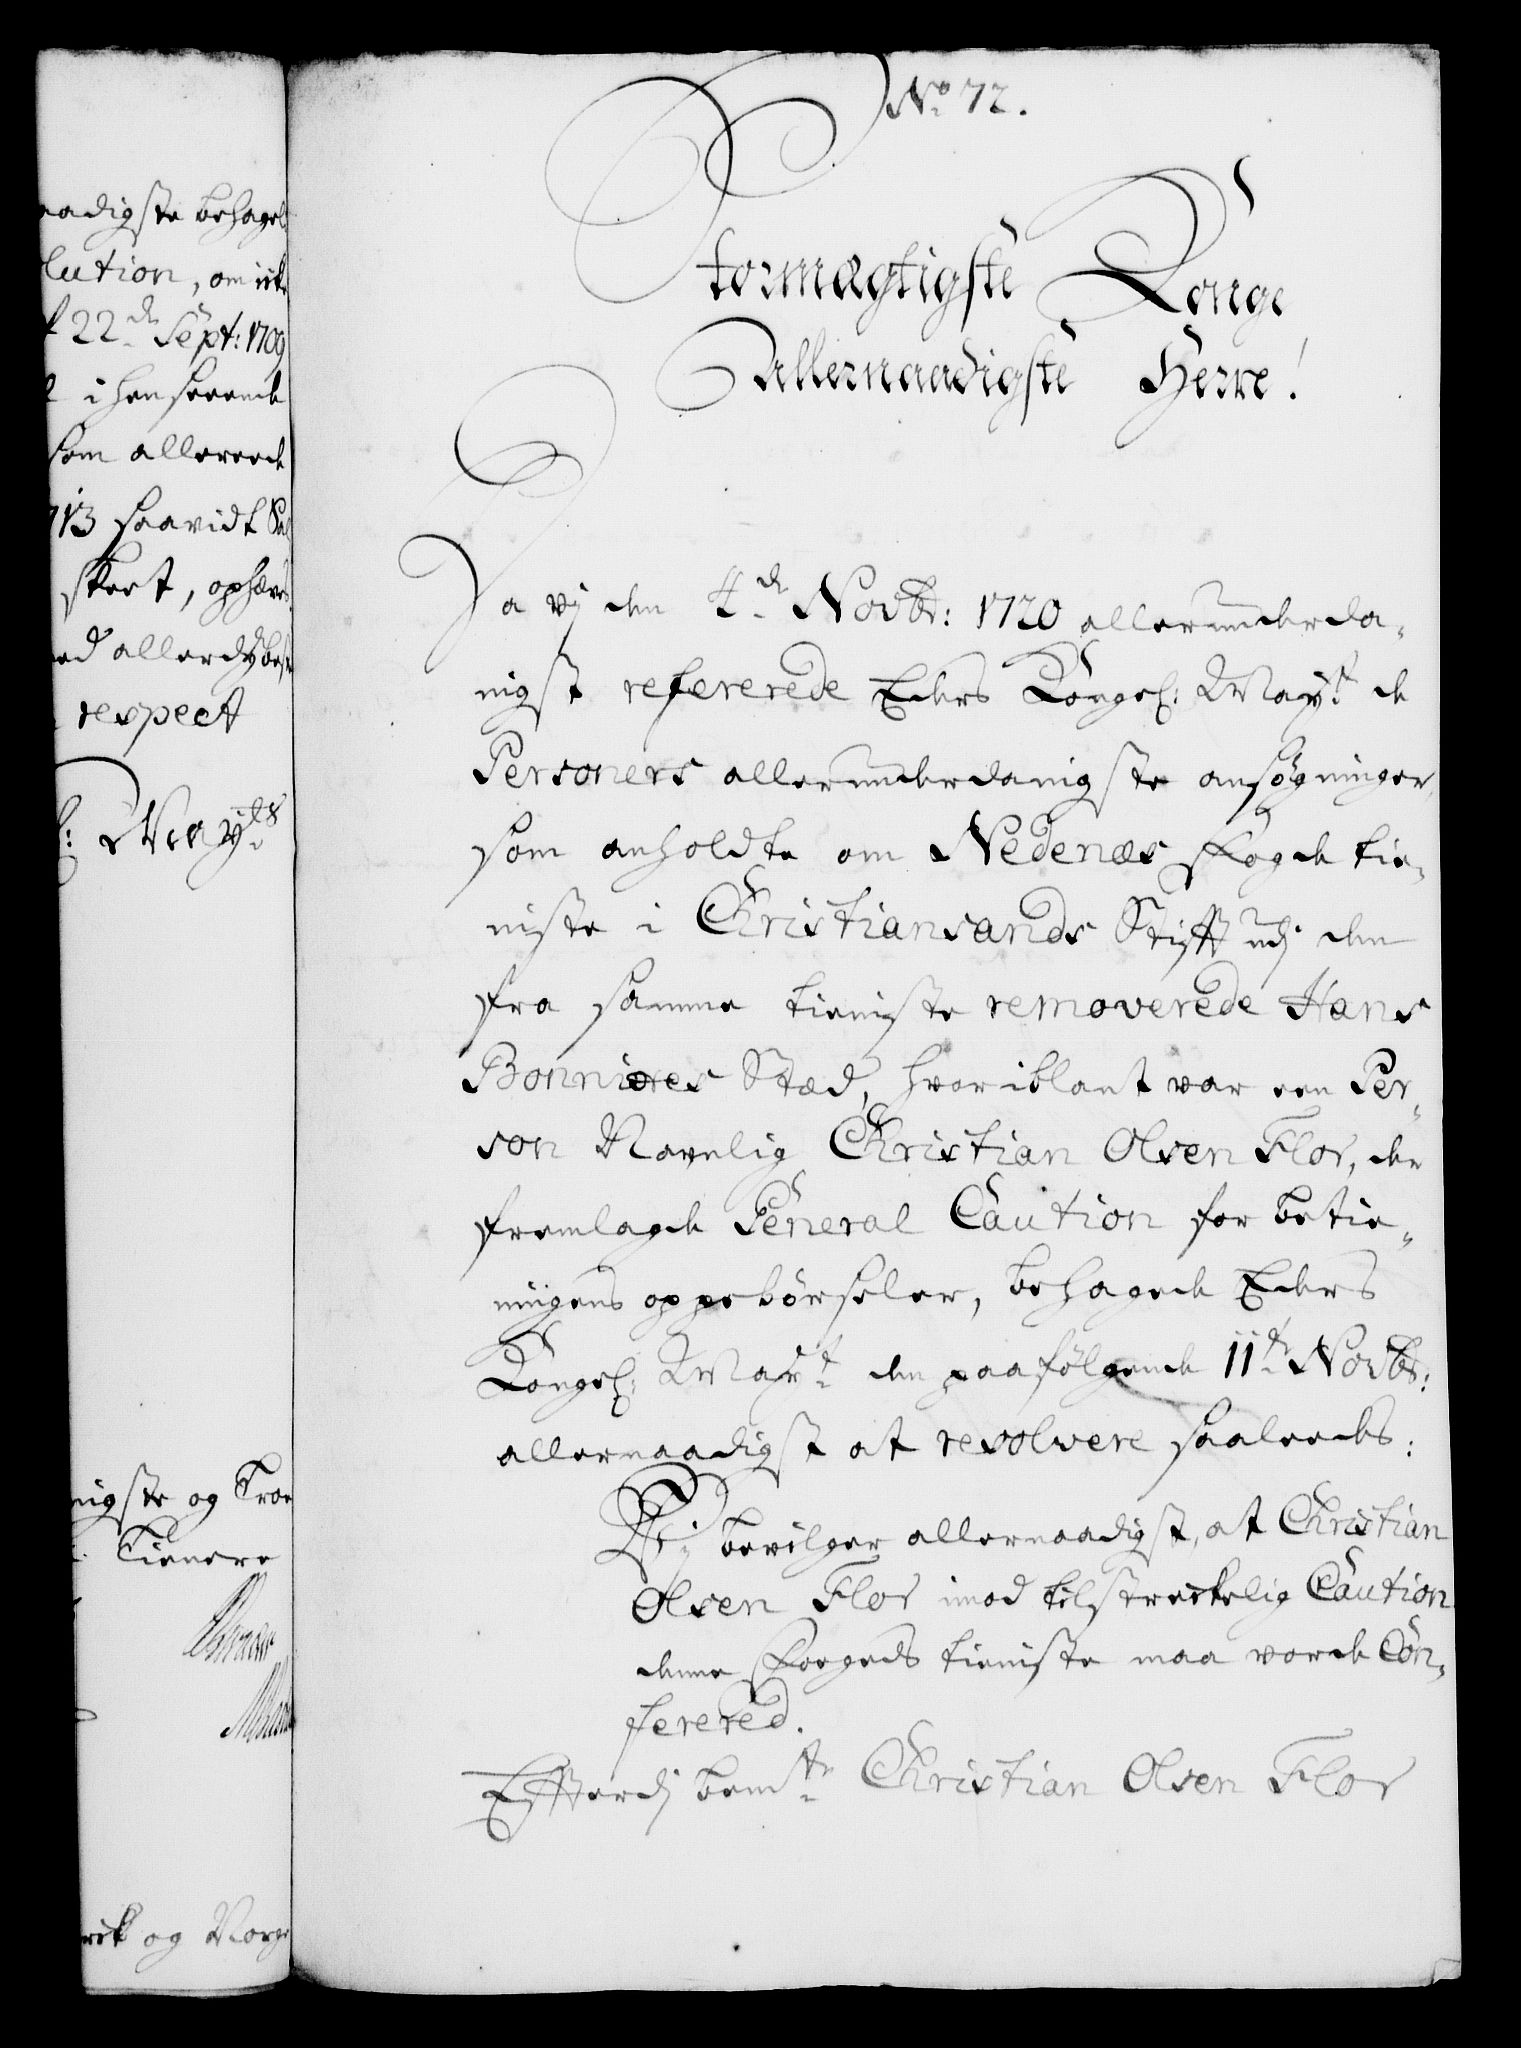 aadigste behagel:
lution, om ick
22de Sept: 1709
i henseende
som allereede
713 saavidt
skeet, ophæves
respect
May.ts
nigste og Troe
Tienere
og Norge
No. 72.
Stormægtigste Konge
Allernaadigste Herre!
Da vj den 4de Novbr: 1720 allerunderda-
nigst refererede Eders Kongel: May.t de
Personers allerunderdanigste ansøgninger,
som anholdte om Nedenæs Fogde tie-
niste i Christiansands Stifft udj den
fra samme tieniste removerede Hans
Bonnieres Stæd, hvoriblant var een Per-
son Navnlig Christian Olsen Flor, der
fremlagde General Caution for betie-
ningens oppebørseler, behagede Eders
Kongel: May.t den paafølgende 11te Novbr:
allernaadigst at resolvere saaleedes:
Vj bevilger allernaadigst, at Christian
Olsen Flor imod tilstreckelig Caution
denne Foegeds tieniste maa vorde Con-
ferered.
Efterdj bemte Christian Olsen Flor